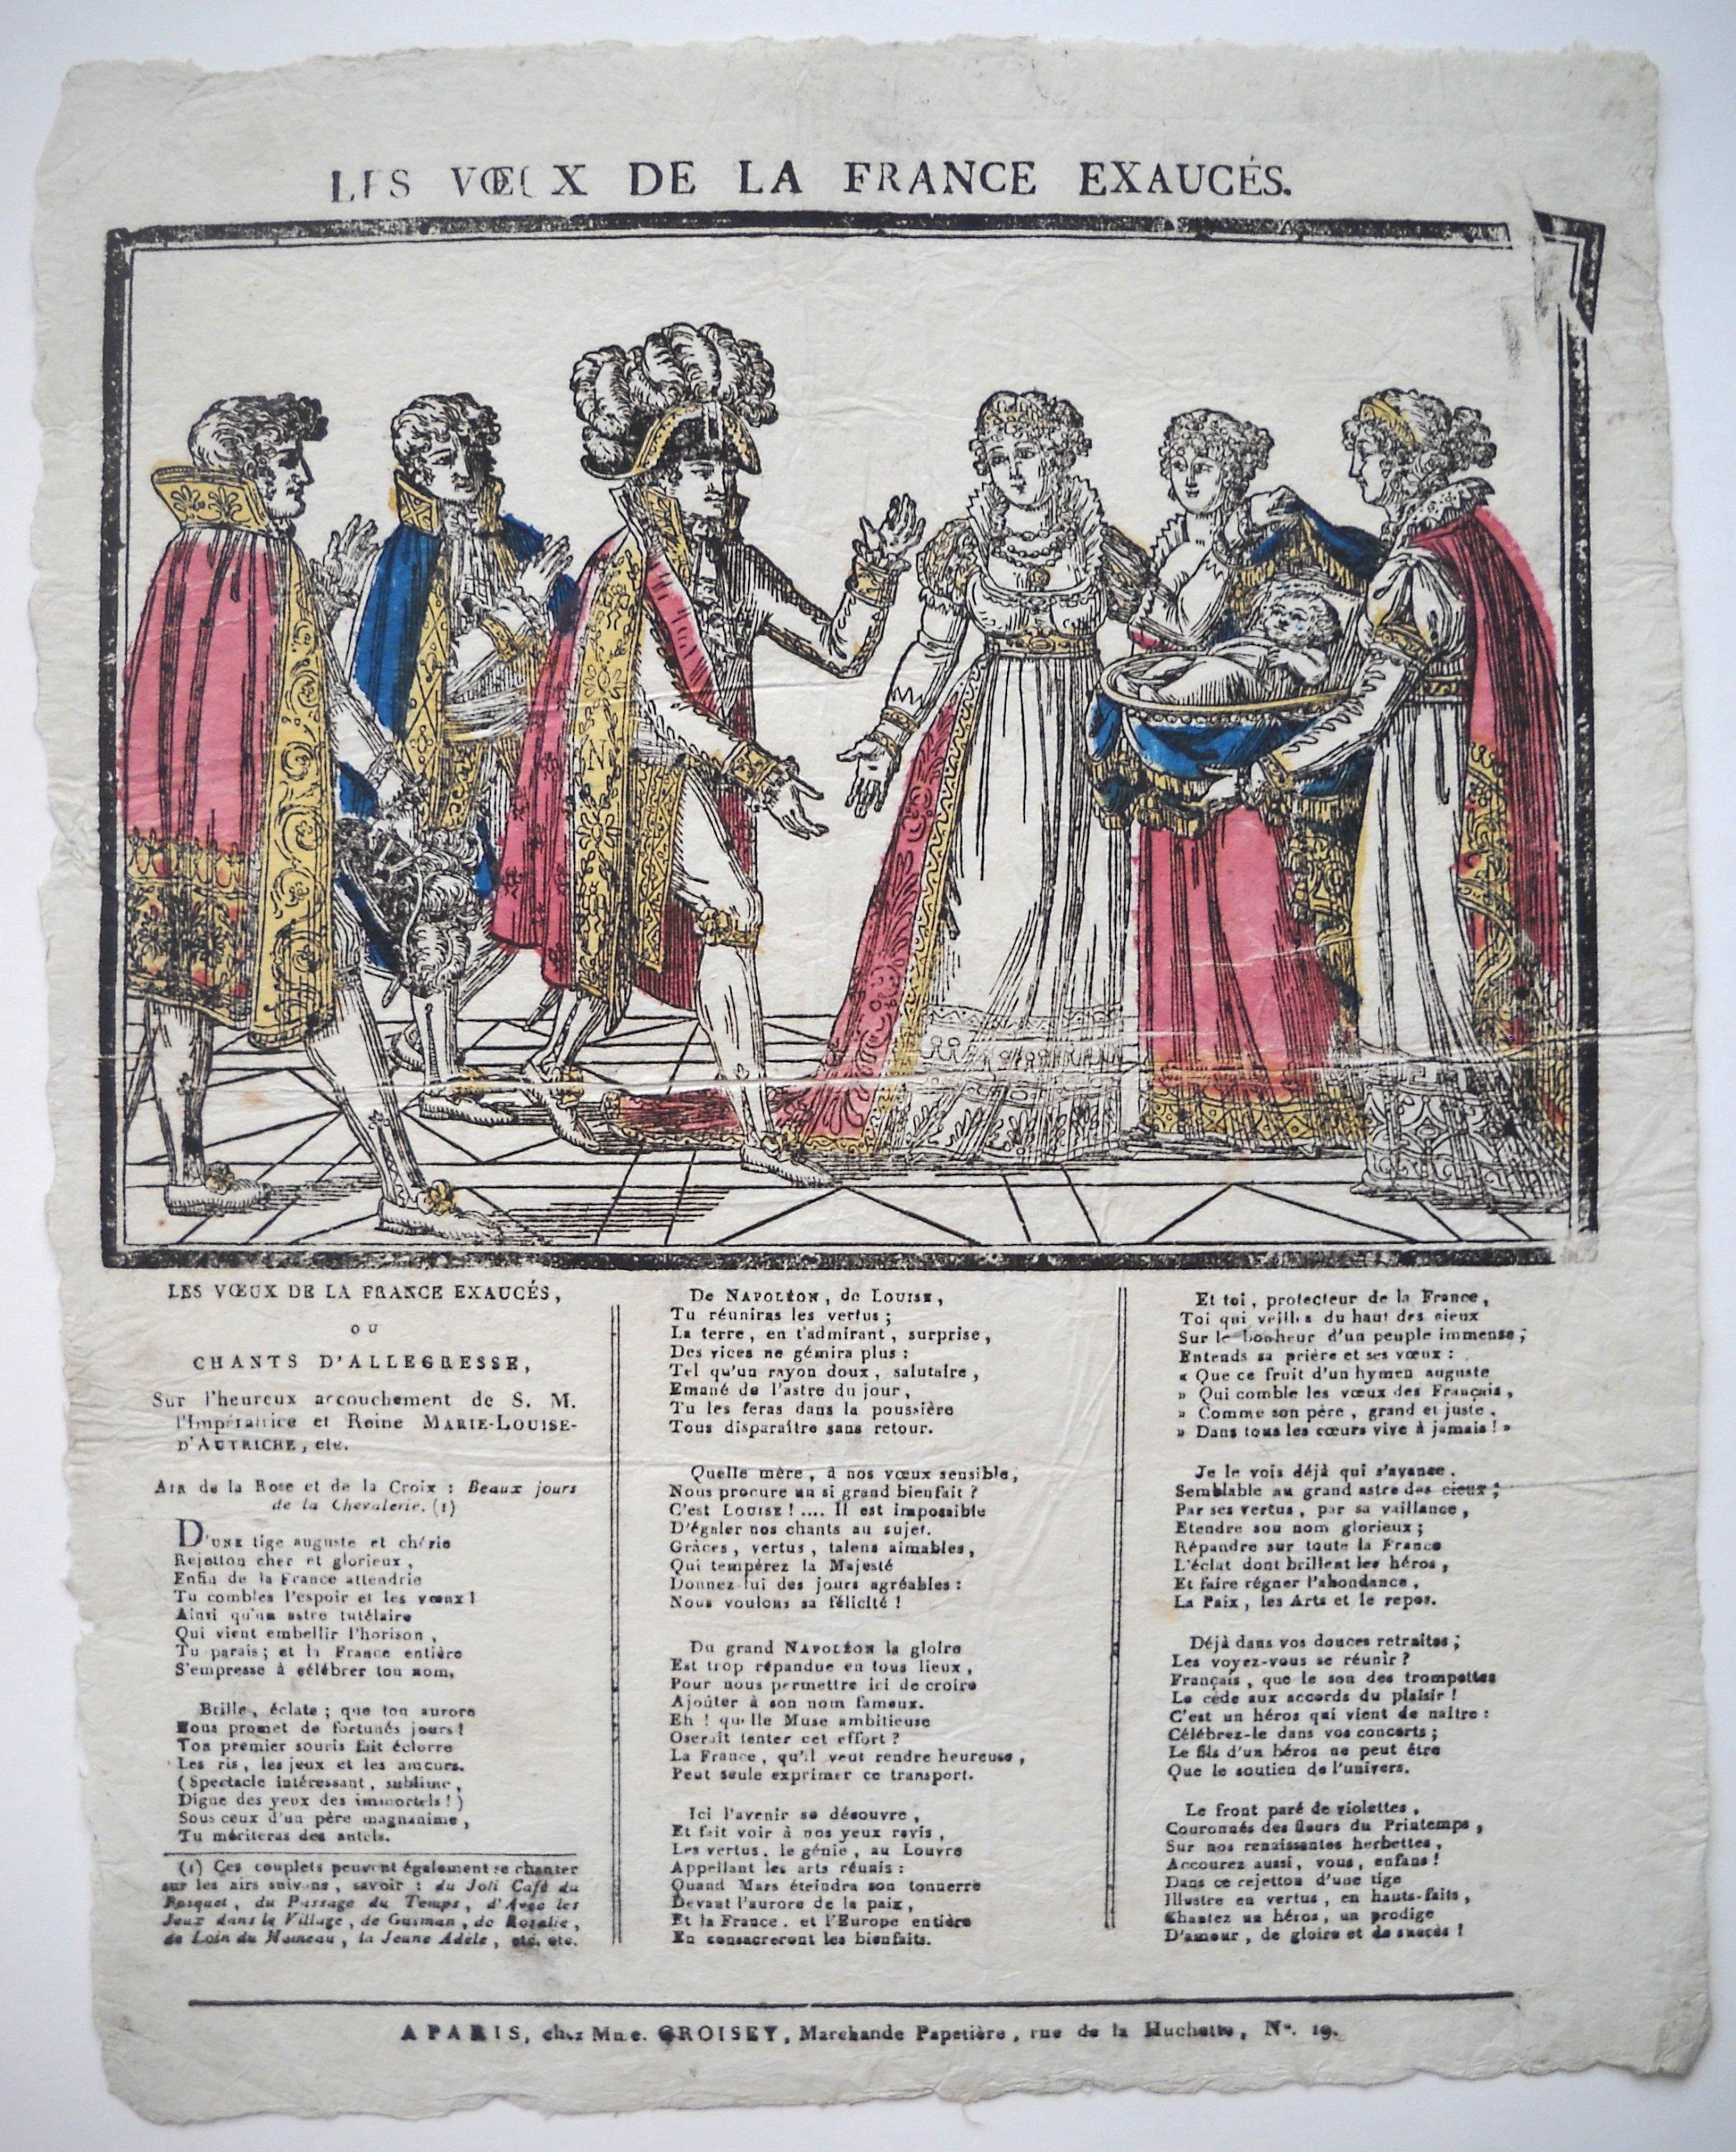 LES VŒUX DE LA FRANCE EXAUCÉS.
N
LES VŒUX DE LA FRANCE EXAUCÉS,
OU
CHANTS D'ALLEGRESSE,
Sur l'heureux accouchement de S. M.
l'Impératrice et Reine MARIE-LOUISE-
D'AUTRICHE, etc.
AIR de la Rose et de la Croix : Beaux jours
de la Chevalerie. (1)
D'UNE tige auguste et chérie
Rejetton cher et glorieux,
Enfin de la France attendrie
Tu combles l'espoir et les vœux !
Ainsi qu'un astre tutélaire
Qui vient embellir l'horison,
Tu parais ; et la France entière
S'empresse à célébrer ton nom.
Brille, éclate ; que ton aurore
Nous promet de fortunés jours !
Ton premier souris fait éclorre
Les ris, les jeux et les amours.
(Spectacle intéressant, sublime,
Digne des yeux des immortels !)
Sous ceux d'un père magnanime,
Tu mériteras des autels.
(1) Ces couplets peuvent également se chanter
sur les airs suivans, savoir : du Joli Café du
Bosquet, du Passage du Temps, d'Avec les
Jeux dans le Village, de Gusman, de Rosalie,
de Loin du Hameau, la Jeune Adèle, etc. etc.
De NAPOLÉON, de LOUISE,
Tu réuniras les vertus ;
La terre, en t'admirant, surprise,
Des vices ne gémira plus :
Tel qu'un rayon doux, salutaire,
Emané de l'astre du jour,
Tu les feras dans la poussière
Tous disparaître sans retour.
Quelle mère, à nos vœux sensible,
Nous procure un si grand bienfait ?
C'est LOUISE !.... Il est impossible
D'égaler nos chants au sujet.
Grâces, vertus, talens aimables,
Qui tempérez la Majesté
Donnez-lui des jours agréables :
Nous voulons sa félicité !
Du grand NAPOLÉON la gloire
Est trop répandue en tous lieux,
Pour nous permettre ici de croire
Ajoûter à son nom fameux.
Eh ! quelle Muse ambitieuse
Oserait tenter cet effort ?
La France, qu'il veut rendre heureuse,
Peut seule exprimer ce transport.
Ici l'avenir se découvre,
Et fait voir à nos yeux ravis,
Les vertus, le génie, au Louvre
Appellant les arts réunis :
Quand Mars éteindra son tonnerre
Devant l'aurore de la paix,
Et la France, et l'Europe entière
En consacreront les bienfaits.
Et toi, protecteur de la France,
Toi qui veilles du haut des cieux
Sur le bonheur d'un peuple immense ;
Entends sa prière et ses vœux :
« Que ce fruit d'un hymen auguste
» Qui comble les vœux des Français,
» Comme son père, grand et juste,
» Dans tous les cœurs vive à jamais ! »
Je le vois déjà qui s'avance,
Semblable au grand astre des cieux ;
Par ses vertus, par sa vaillance,
Etendre son nom glorieux ;
Répandre sur toute la France
L'éclat dont brillent les héros,
Et faire régner l'abondance,
La Paix, les Arts et le repos.
Déjà dans vos douces retraites ;
Les voyez-vous se réunir ?
Français, que le son des trompettes
Le cède aux accords du plaisir !
C'est un héros qui vient de naître :
Célébrez-le dans vos concerts ;
Le fils d'un héros ne peut être
Que le soutien de l'univers.
Le front paré de violettes,
Couronnés des fleurs du Printemps,
Sur nos renaissantes herbettes,
Accourez aussi, vous, enfans !
Dans ce rejetton d'une tige
Illustre en vertus, en hauts-faits,
Chantez un héros, un prodige
D'amour, de gloire et de succès !
A PARIS, chez Mme. CROISEY, Marchande Papetière, rue de la Huchette, N°. 19.